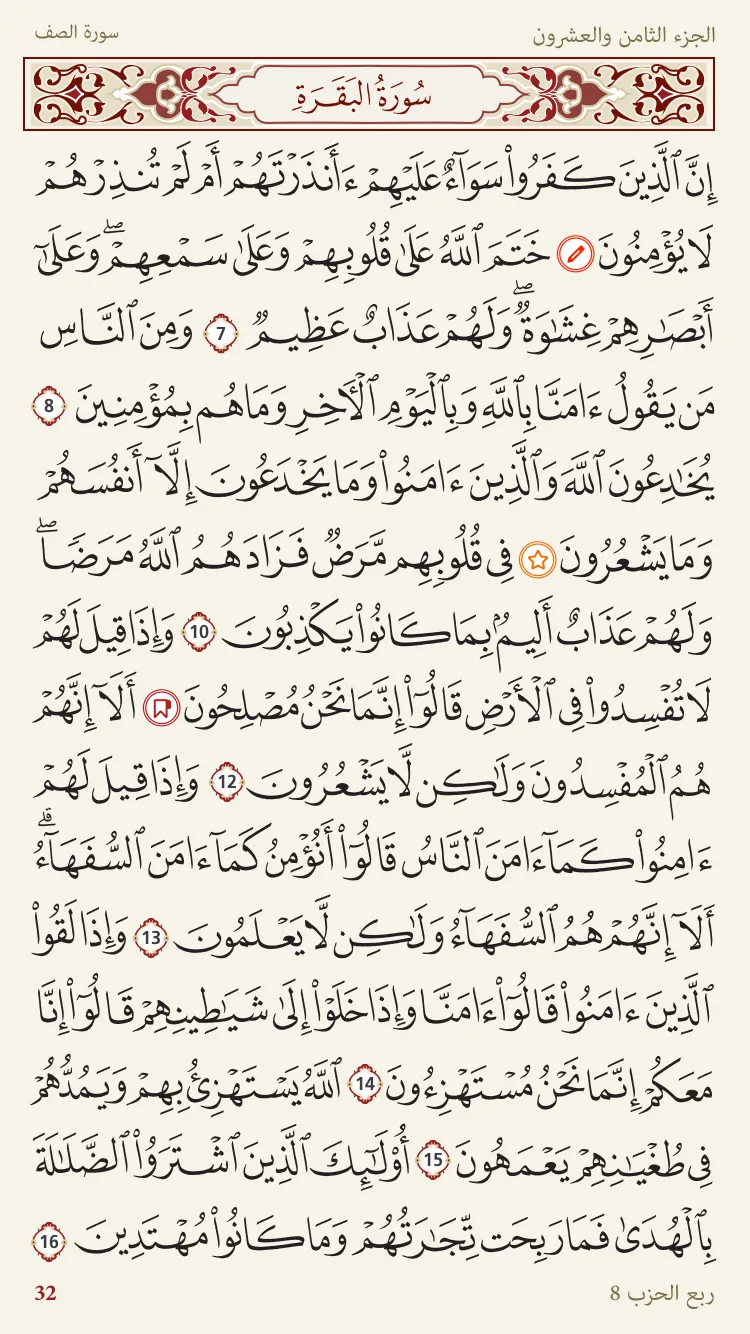 الجزء الثامن والعشرون
سورة الصف
سُورَةُ البَقَرَةِ
إِنَّ ٱلَّذِينَ كَفَرُوا۟ سَوَآءٌ عَلَيْهِمْ ءَأَنذَرْتَهُمْ أَمْ لَمْ تُنذِرْهُمْ
لَا يُؤْمِنُونَ خَتَمَ ٱللَّهُ عَلَىٰ قُلُوبِهِمْ وَعَلَىٰ سَمْعِهِمْ ۖ وَعَلَىٰٓ
أَبْصَـٰرِهِمْ غِشَـٰوَةٌ ۖ وَلَهُمْ عَذَابٌ عَظِيمٌ 7 وَمِنَ ٱلنَّاسِ
مَن يَقُولُ ءَامَنَّا بِٱللَّهِ وَبِٱلْيَوْمِ ٱلْـَٔاخِرِ وَمَا هُم بِمُؤْمِنِينَ 8
يُخَـٰدِعُونَ ٱللَّهَ وَٱلَّذِينَ ءَامَنُوا۟ وَمَا يَخْدَعُونَ إِلَّآ أَنفُسَهُمْ
وَمَا يَشْعُرُونَ فِى قُلُوبِهِم مَّرَضٌ فَزَادَهُمُ ٱللَّهُ مَرَضًا ۖ
وَلَهُمْ عَذَابٌ أَلِيمٌۢ بِمَا كَانُوا۟ يَكْذِبُونَ 10 وَإِذَا قِيلَ لَهُمْ
لَا تُفْسِدُوا۟ فِى ٱلْأَرْضِ قَالُوٓا۟ إِنَّمَا نَحْنُ مُصْلِحُونَ أَلَآ إِنَّهُمْ
هُمُ ٱلْمُفْسِدُونَ وَلَـٰكِن لَّا يَشْعُرُونَ 12 وَإِذَا قِيلَ لَهُمْ
ءَامِنُوا۟ كَمَآ ءَامَنَ ٱلنَّاسُ قَالُوٓا۟ أَنُؤْمِنُ كَمَآ ءَامَنَ ٱلسُّفَهَآءُ ۗ
أَلَآ إِنَّهُمْ هُمُ ٱلسُّفَهَآءُ وَلَـٰكِن لَّا يَعْلَمُونَ 13 وَإِذَا لَقُوا۟
ٱلَّذِينَ ءَامَنُوا۟ قَالُوٓا۟ ءَامَنَّا وَإِذَا خَلَوْا۟ إِلَىٰ شَيَـٰطِينِهِمْ قَالُوٓا۟ إِنَّا
مَعَكُمْ إِنَّمَا نَحْنُ مُسْتَهْزِءُونَ 14 ٱللَّهُ يَسْتَهْزِئُ بِهِمْ وَيَمُدُّهُمْ
فِى طُغْيَـٰنِهِمْ يَعْمَهُونَ 15 أُو۟لَـٰٓئِكَ ٱلَّذِينَ ٱشْتَرَوُا۟ ٱلضَّلَـٰلَةَ
بِٱلْهُدَىٰ فَمَا رَبِحَت تِّجَـٰرَتُهُمْ وَمَا كَانُوا۟ مُهْتَدِينَ 16
ربع الحزب 8
32